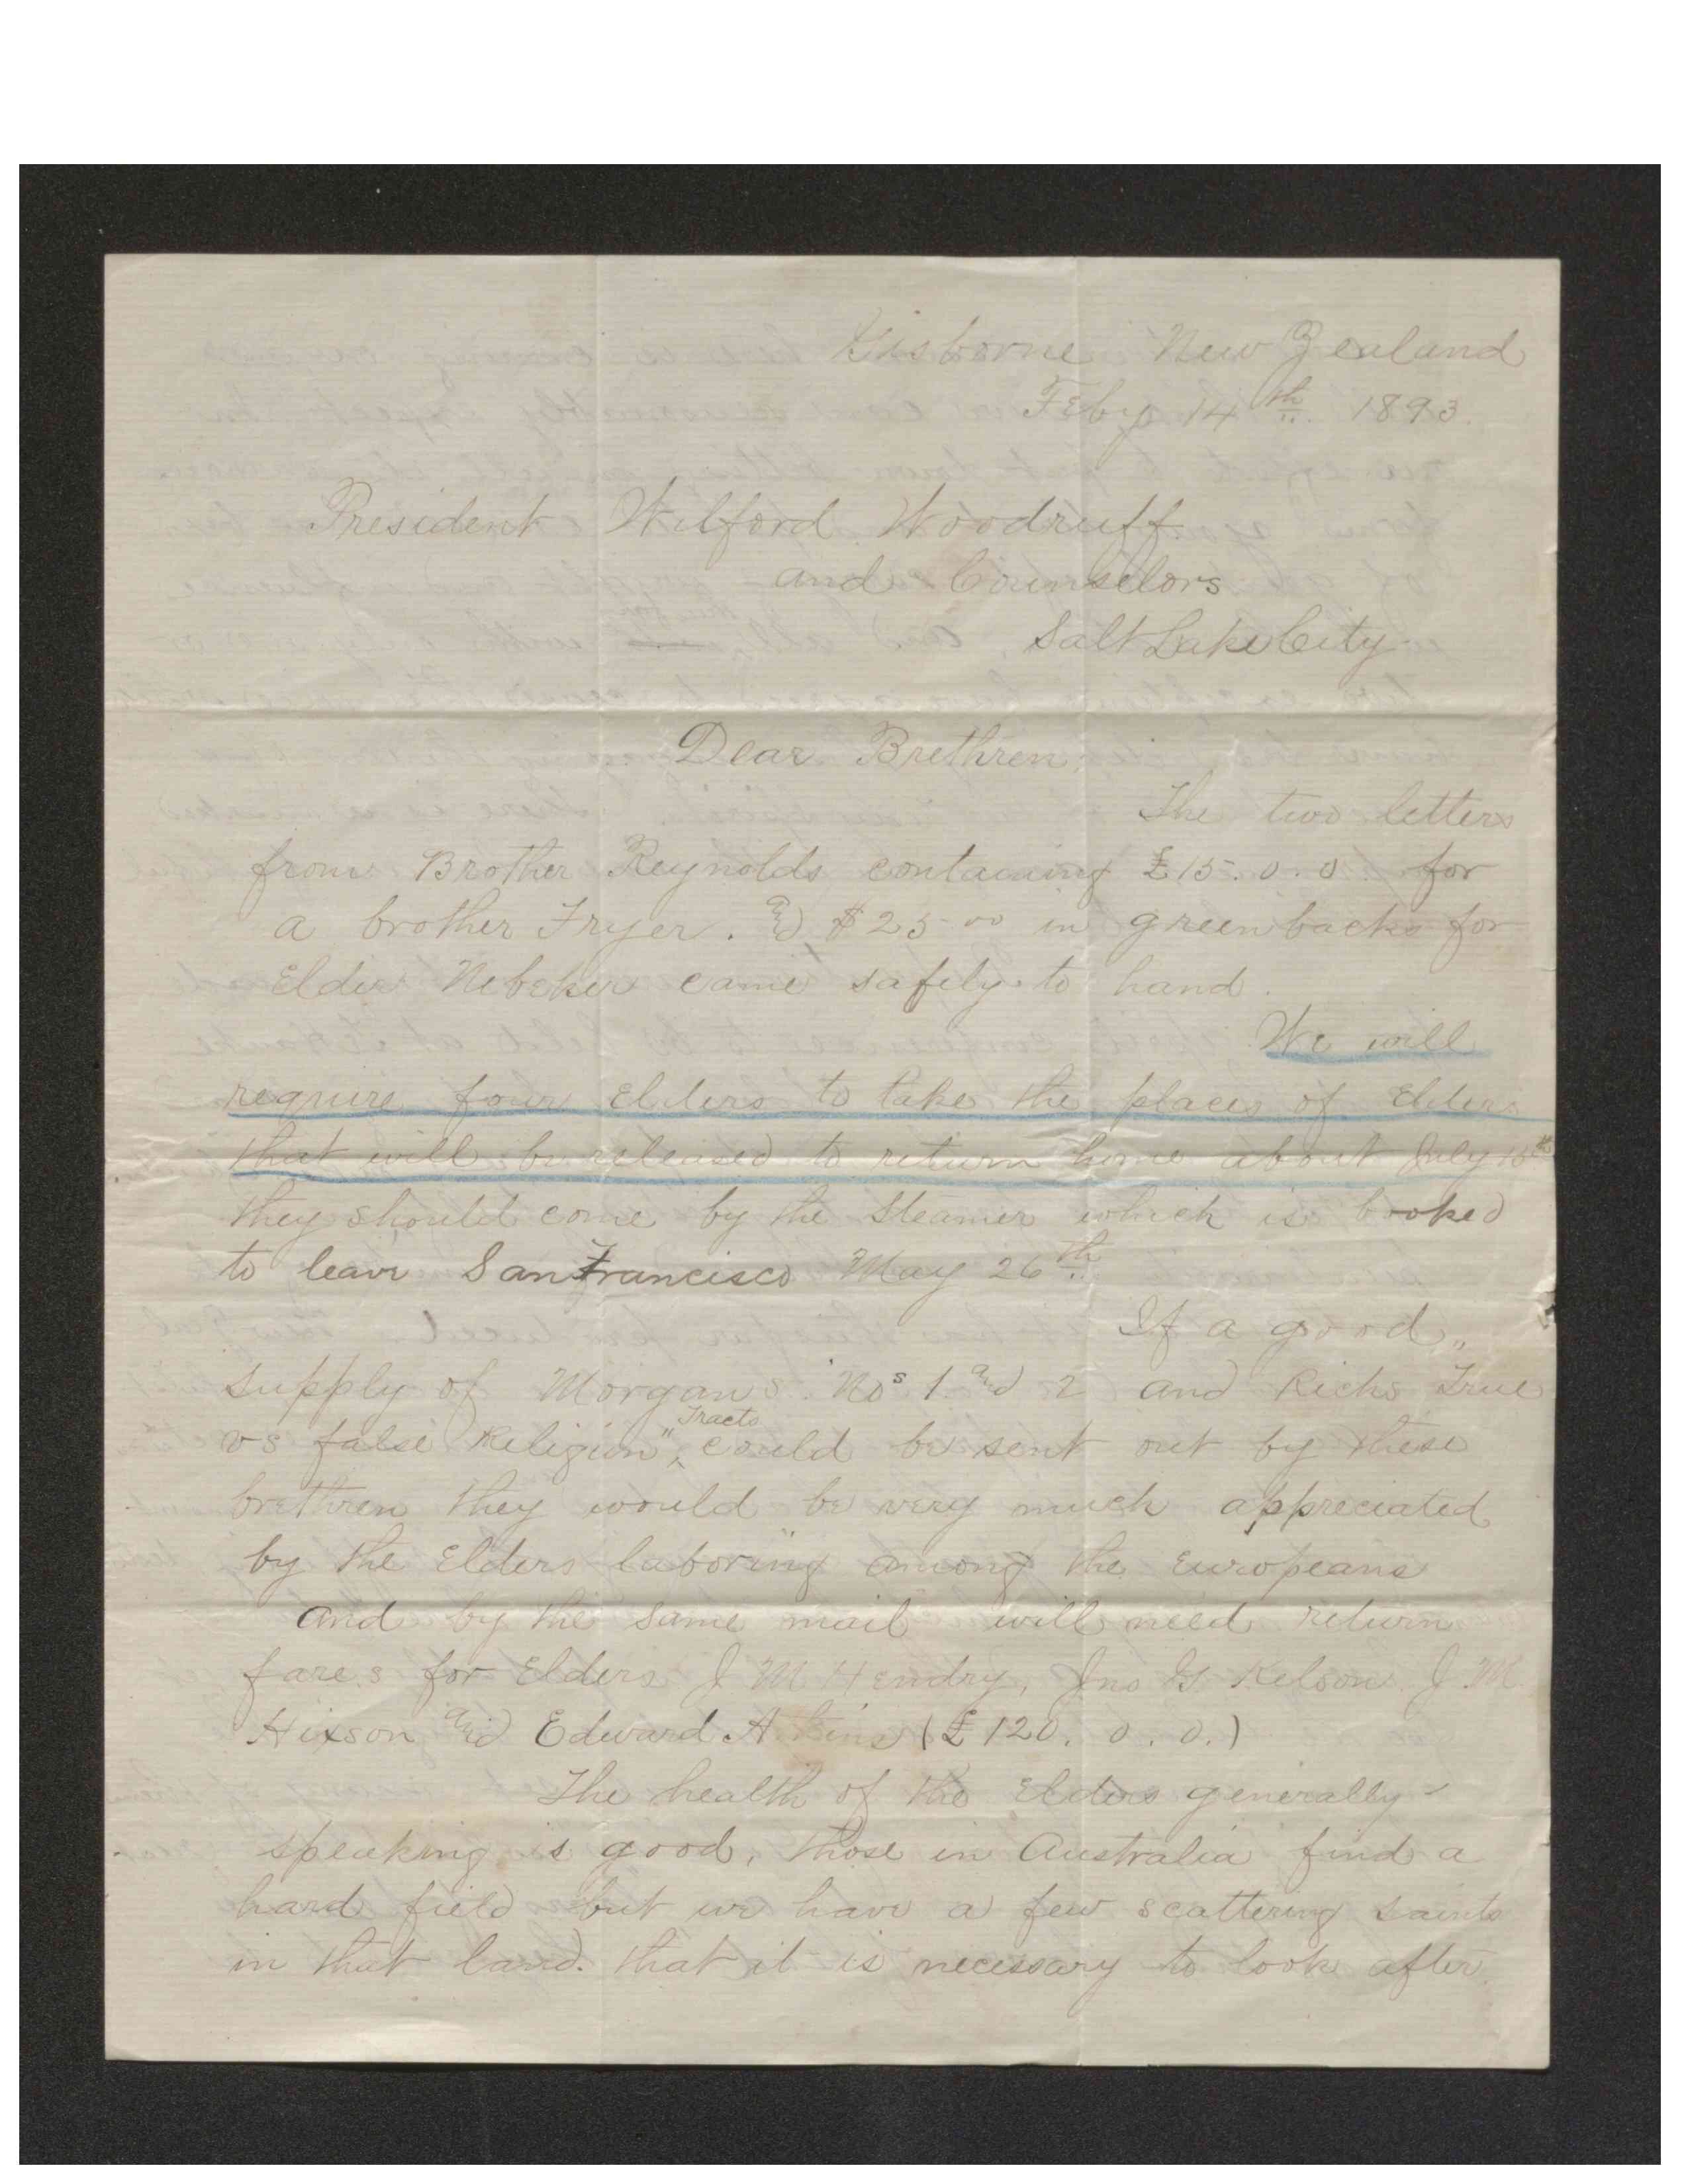 Gisborne New Zealand
Feby 14th 1893.
President Wilford Woodruff
and Counselors
Salt Lake City
Dear Brethren:
The two letters
from Brother Reynolds containing £15.0.0. for
a brother Fryer. and $25.00 in greenbacks for
Elder Nebeker came safely to hand.
We will
require four Elders to take the places of Elders
that will be released to return home about July 15th
they should come by the Steamer which is booked
to leave San Francisco May 26th
If a good
supply of Morgans Nos 1 and 2 and Richs "True
vs false Religion", Tracts could be sent out by these
brethren they would be very much appreciated
by the Elders laboring among the Europeans
and by the same mail will need return
fares for Elders J M Hendry, Jno G Kelson J. M.
Hixson and Edward Atkins (£120. 0. 0.)
The health of the Elders generally
speaking is good, those in Australia find a
hard field but we have a few scattering saints
in that land. that it is necessary to look after.